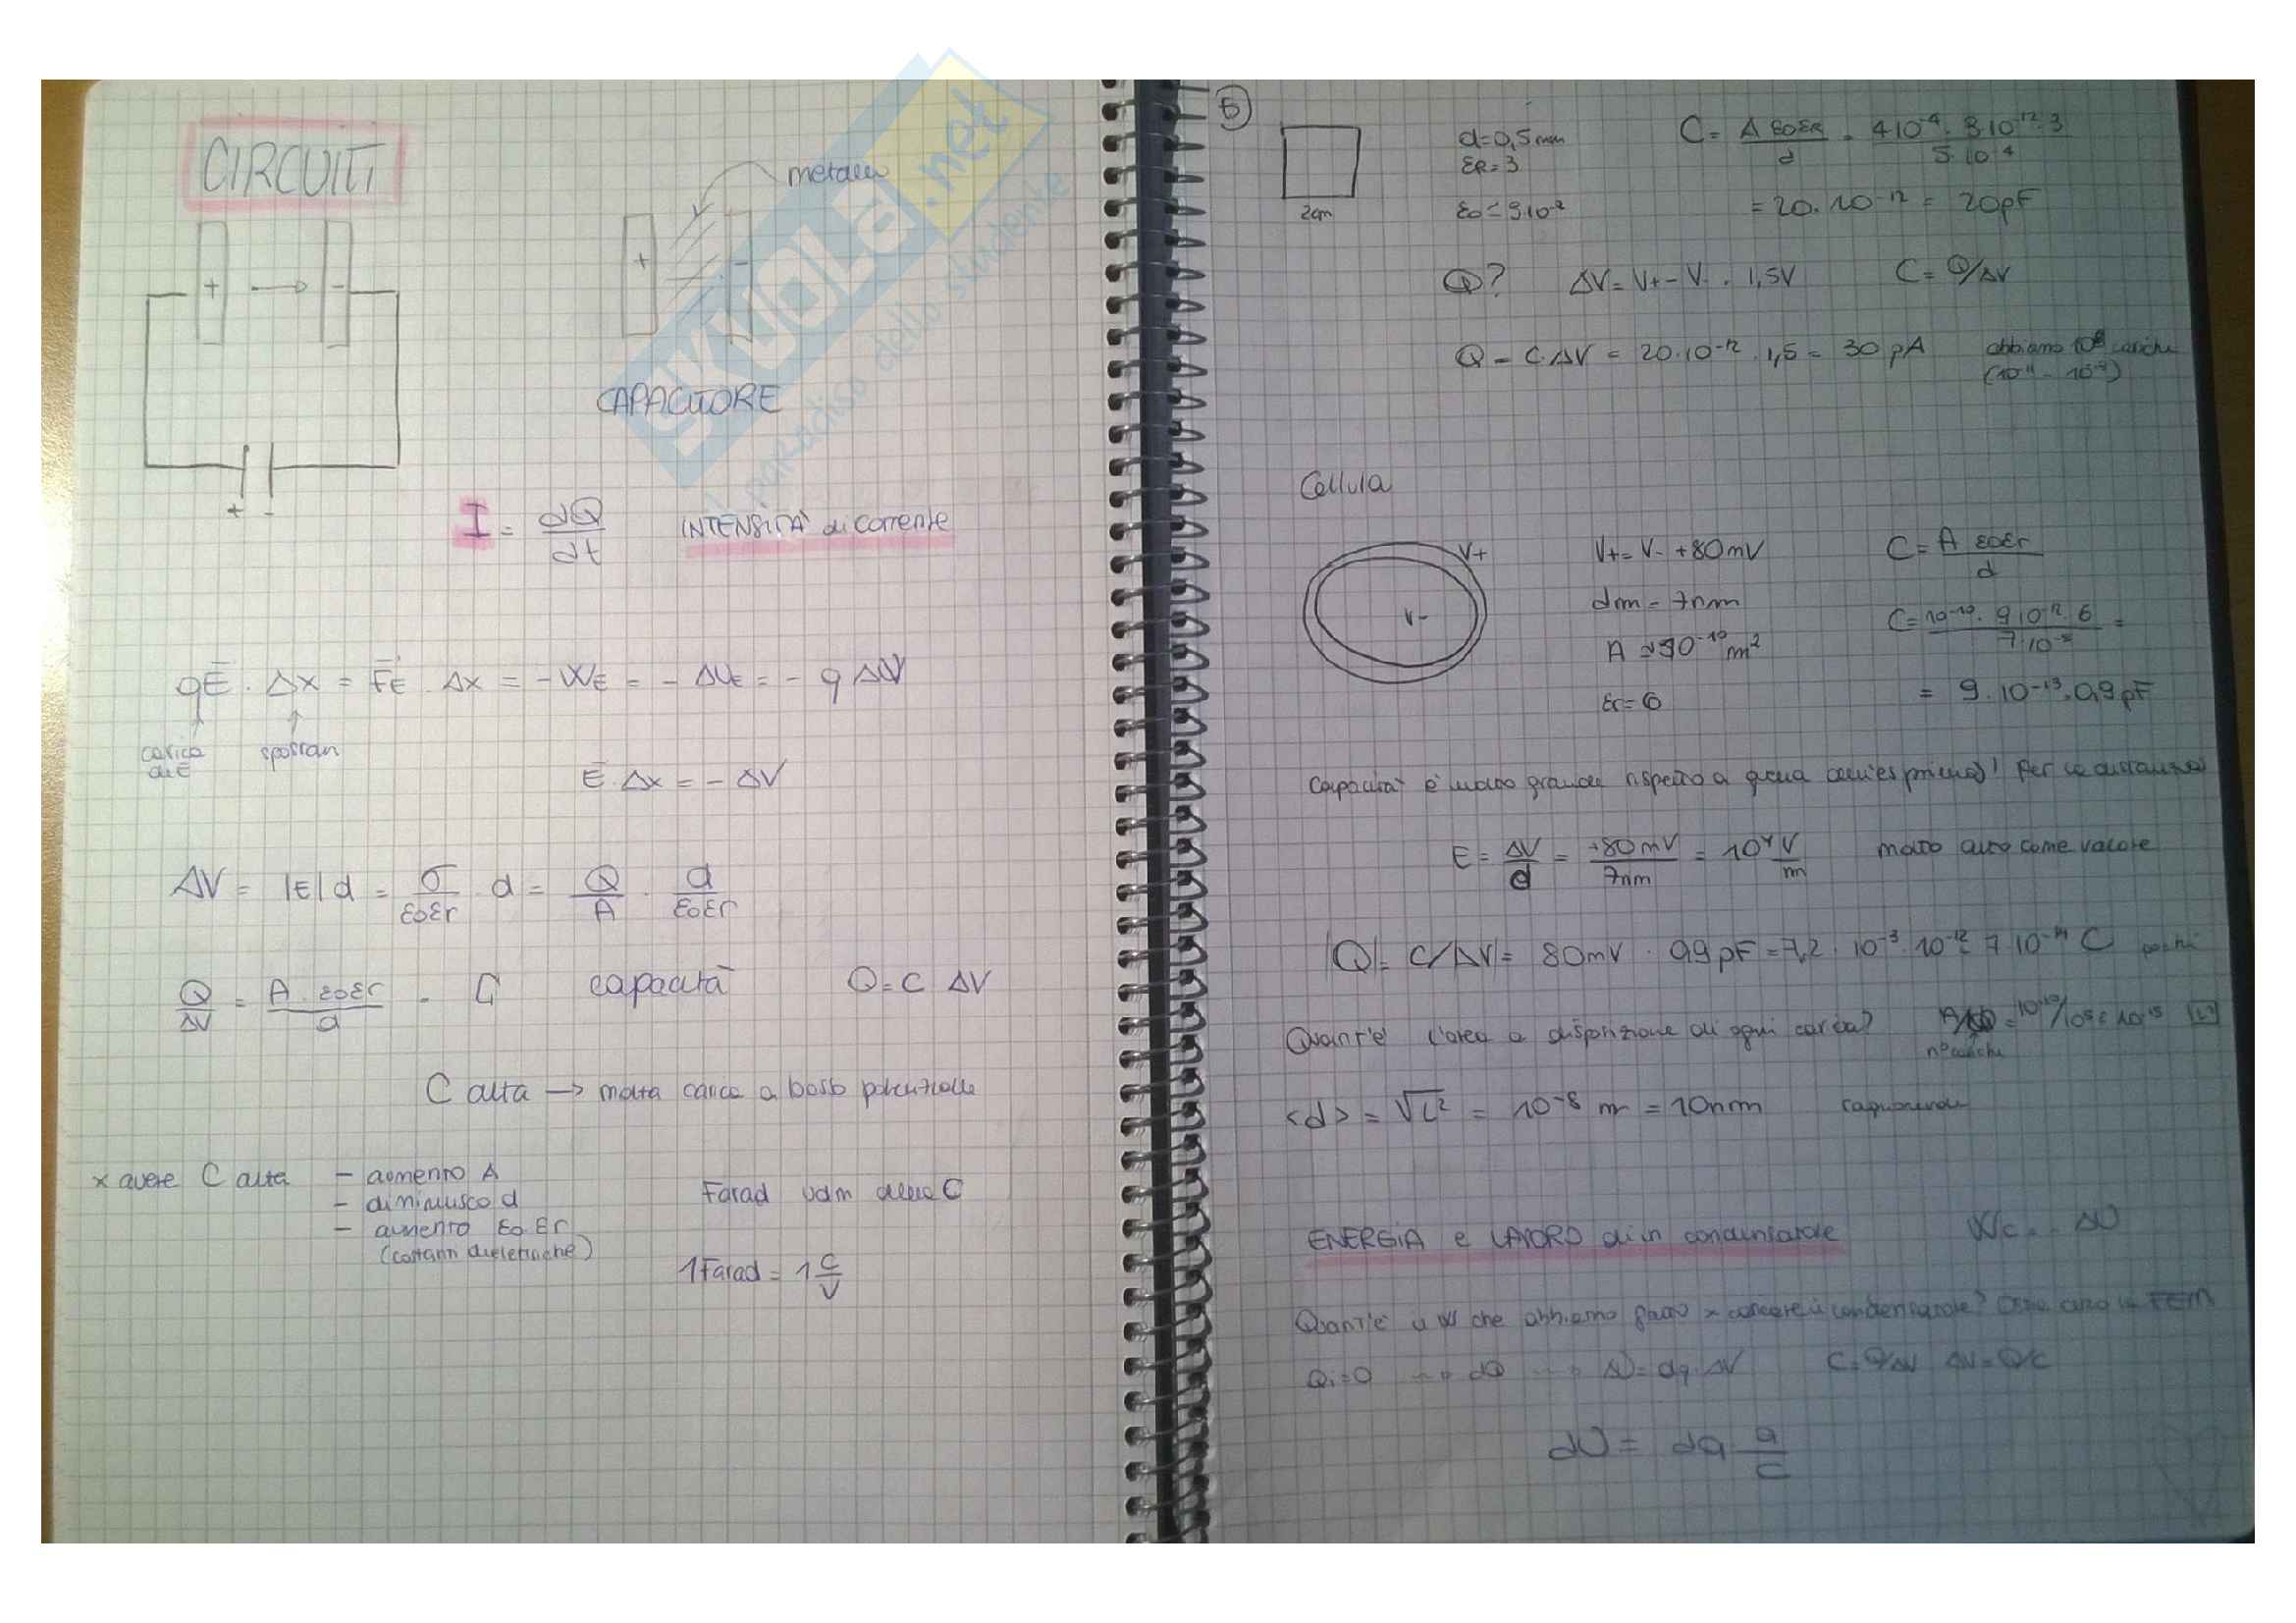 CIRCUITI
metallo
+ → -
+ -
CAPACITORE
+ -
I = dQ/dt INTENSITÀ di corrente
qE · Δx = FE · Δx = -WE = -ΔUE = - q ΔV
carica spostam
di E
E · Δx = - ΔV
ΔV = |E| d = σ/ε0εr · d = Q/A · d/ε0εr
Q/ΔV = A · ε0εr/d = C capacità Q = C ΔV
C alta → molta carica a basso potenziale
x avere C alta - aumento A
- diminuisco d
- aumento ε0 εr
(costanti dielettriche)
Farad udm della C
1 Farad = 1 C/V
5
2cm
d = 0,5 mm
εR = 3
C = A ε0εR/d = 4 10⁻⁴ · 9 10⁻¹² · 3/5 · 10⁻⁴
= 20 · 10⁻¹² = 20pF
Q? ΔV = V+ - V- = 1,5V C = Q/ΔV
Q = C · ΔV = 20 · 10⁻¹² · 1,5 = 30 pA abbiamo 10⁸ cariche
Cellula
V+
V-
V+ = V- + 80mV C = A ε0εr/d
dm = 7nm
εr = 6
= 9 · 10⁻¹³ · 0,9 pF
Capacità è molto grande rispetto a quella dell'es prima! Per la distanza
E = ΔV/d = +80mV/7nm = 10⁷ V/m molto alto come valore
|Q| = C/ΔV| = 80mV · 0,9 pF = 7,2 · 10⁻³ · 10⁻¹² 7 10⁻¹⁴ C pochi
Quant'è l'area a disposizione di ogni carica?
n° cariche
<d> = √L² = 10⁻⁸ m = 10nm
ENERGIA e LAVORO di un condensatore Wc = - ΔU
Quant'è il W che abbiamo fatto x caricare il condensatore? FEM
Qi = 0 → dQ → ΔU = dq · ΔV C = Q/ΔV ΔV = Q/C
dU = dq q/C
SKUOLa.net
il paradiso dello studente